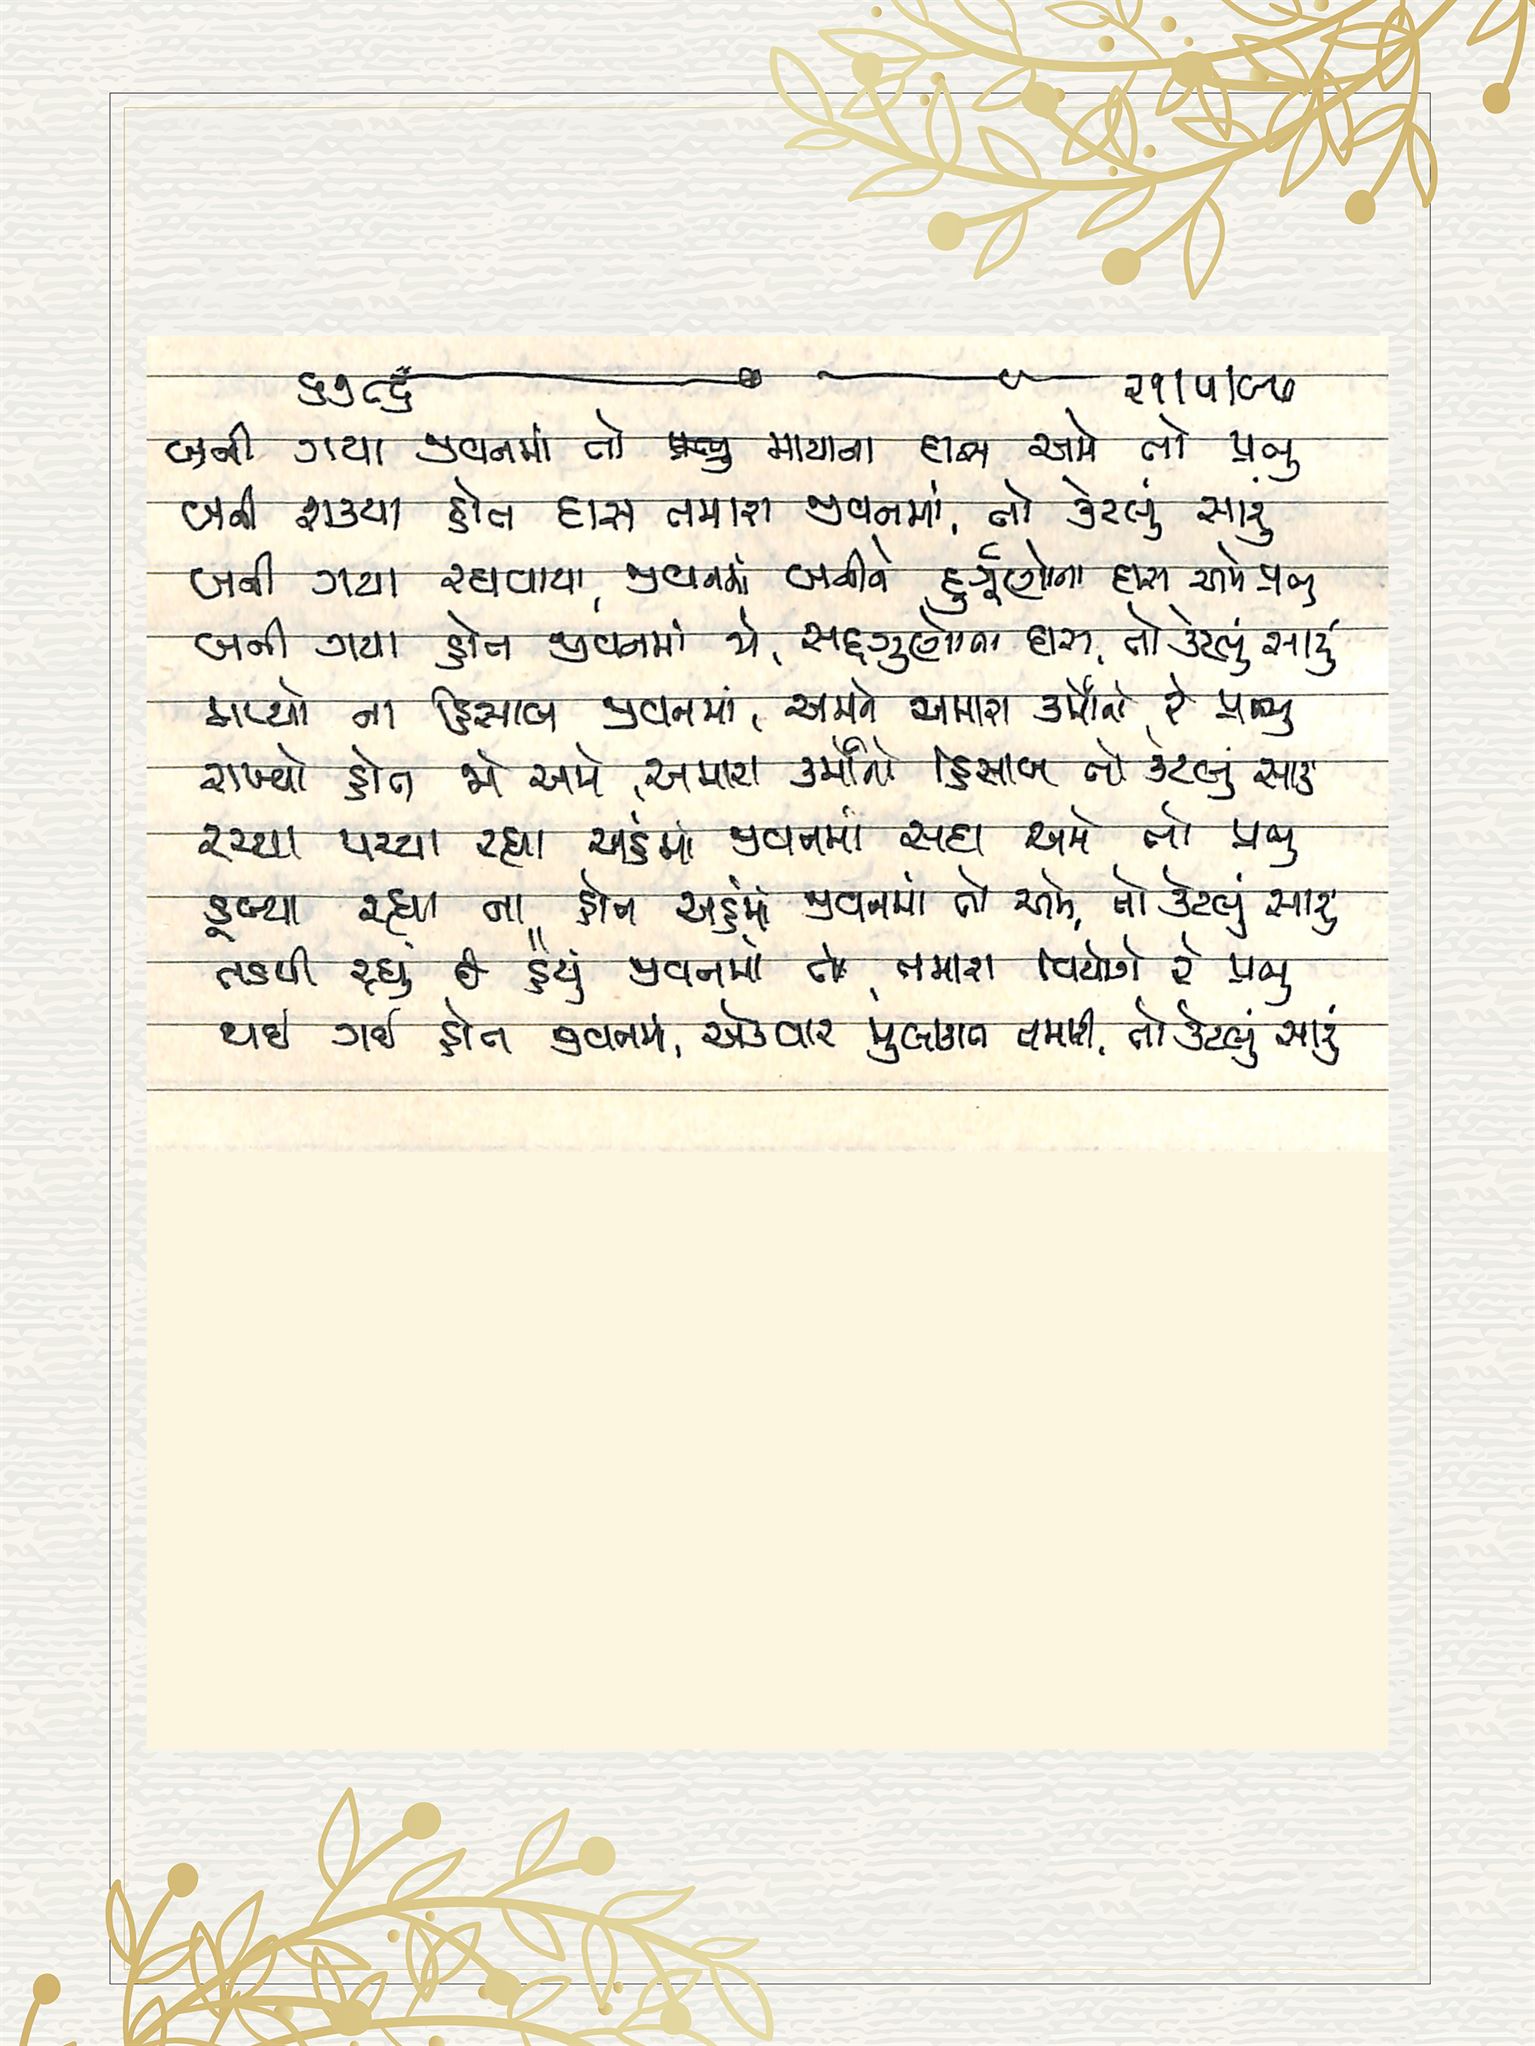 ૨૧/૫/૯૭
બની ગયા જીવનમાં તો માયાના દાસ અમે તો પ્રભુ
બની શક્યા હોત દાસ તમારા જીવનમાં, તો કેટલું સારું
બની ગયા રઘવાયા, જીવનમાં બનીને દુર્ગુણોના દાસ અમે પ્રભુ
બની ગયા હોત જીવનમાં જો, સદ્દગુણોના દાસ, તો કેટલું સારું
માપ્યો ના હિસાબ જીવનમાં, અમને અમારા કર્મોનો રે પ્રભુ
રાખ્યો હોત જો અમે, અમારા કર્મોનો હિસાબ તો કેટલું સારું
રચ્યા પચ્યા રહ્યા અહંમાં જીવનમાં સદા અમે તો પ્રભુ
ડૂબ્યા રહ્યા ના હોત અહંમાં જીવનમાં તો અમે, તો કેટલું સારું
તડપી રહ્યું છે હૈયું જીવનમાં તો, તમારા વિયોગે રે પ્રભુ
થઈ ગઈ હોત જીવનમાં, એકવાર મુલાકાત તમારી, તો કેટલું સારું